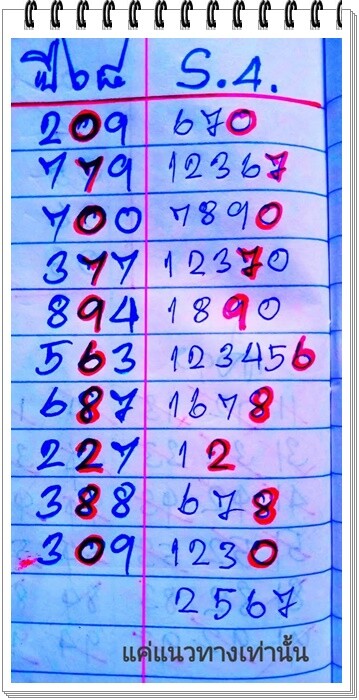 ปี๖๘ S.4.
209 670
779 12367
700 7890
377 12370
894 1890
563 123456
687 1678
227 12
388 678
309 1230
2567
แค่แนวทางเท่านั้น